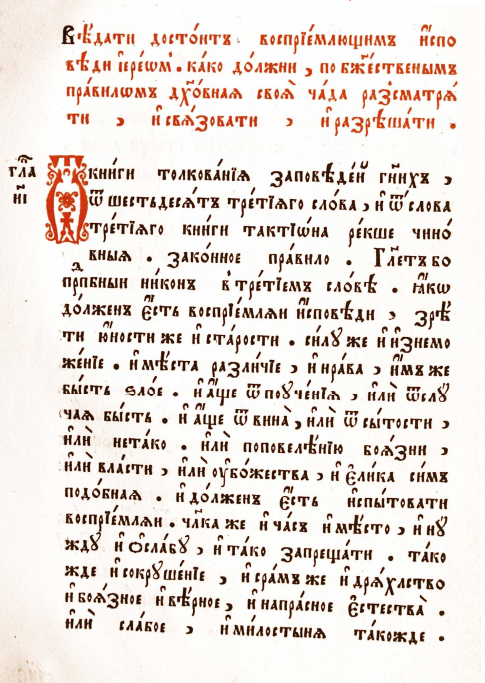 Вѣ́дати досто́итъ воспрїе́млющимъ и҆спо
вѣ́ди і҆ере́ѡмъ. ка́ко до́лжни, по бж҃е́ственымъ
пра́вилѡмъ дх҃о́вная своя̀ ча́да разсматря́
ти, и҆ свѧ́зовати, и҆ разрѣша́ти.
гла́
и҃і
Ѿ кни́ги толкова́нїя за́повѣде́й гн҃ихъ,
ѿ шестьдеся́тъ тре́тїяго сло́ва, и҆ ѿ слова
тре́тїяго кни́ги тактїѡ́на ре́кше чино́
вныя. зако́нное пра́вило. Гл҃етъ бо
прпⷣбныи ни́конъ в̾ тре́тїемъ сло́вѣ. ꙗ҆́кѡ
до́лженъ є҆́сть воспрїе́мляи и҆́сповѣди, зрѣ́
ти ю҆́ности же и҆ ста́рости. си́лу же и҆ и҆знемо
же́нїе. и҆ мѣ́ста разли́чїе, и҆ нра́ва, и҆́мъ же
бы́сть ѕло́е. и҆ а҆́ще ѿ поуче́нїя, и҆лѝ ѿ слу́
чая бы́сть. и҆ а҆́ще ѿ вина̀, и҆лѝ ѿ сы́тости,
и҆лѝ нета́ко. и҆лѝ поповелѣ́нїю боя́зни,
и҆лѝ вла́сти, и҆лѝ оу҆бо́жества, и҆ є҆ли́ка си́мъ
подо́бная. и҆ до́лженъ є҆́сть и҆спы́товати
воспрїе́мляи. чл҃ка же и҆ ча́съ и҆ мѣ́сто, и҆ ну́
жду и҆ ѻ҆сла́бу, и҆ та́ко запреща́ти. та́ко
жде и҆ сокруше́нїе, и҆ сра́мъ же и҆ дря́хлство
и҆ боя́зное и҆ вѣ́рное, и҆ напра́сное є҆стества̀.
и҆лѝ сла́бое, и҆ ми́лостыня та́кожде.